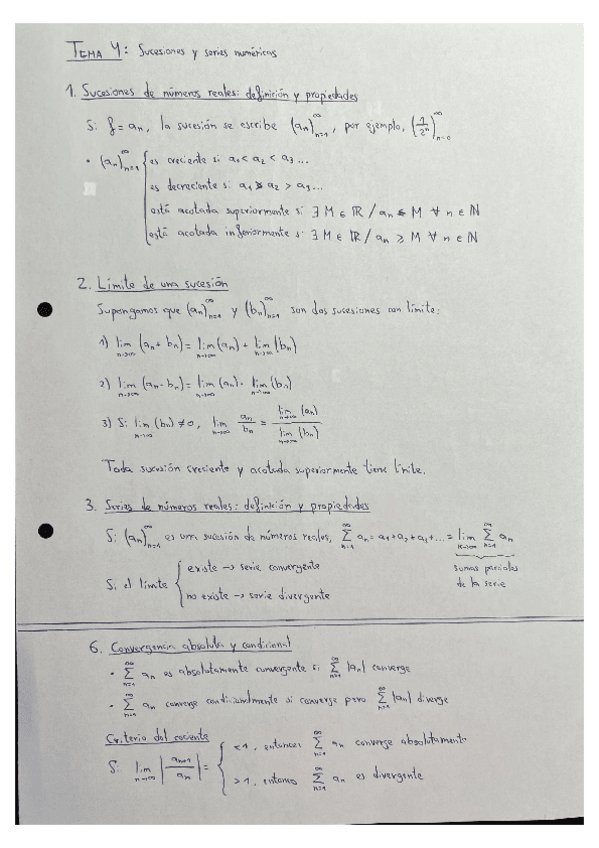 TEMA 4: Sucesiones y series numéricas
1. Sucesiones de números reales: definición y propiedades
Si f = aₙ, la sucesión se escribe (aₙ)ₙ₌₁^∞, por ejemplo, (1/2ⁿ)ₙ₌₀^∞
• (aₙ)ₙ₌₁^∞ { es creciente si a₁ < a₂ < a₃ ...
es decreciente si a₁ > a₂ > a₃ ...
está acotada superiormente si ∃ M ∈ ℝ / aₙ ≤ M ∀ n ∈ ℕ
está acotada inferiormente si ∃ M ∈ ℝ / aₙ ≥ M ∀ n ∈ ℕ
2. Límite de una sucesión
Supongamos que (aₙ)ₙ₌₁^∞ y (bₙ)ₙ₌₁^∞ son dos sucesiones con límite:
1) lim n→∞ (aₙ + bₙ) = lim n→∞ (aₙ) + lim n→∞ (bₙ)
2) lim n→∞ (aₙ · bₙ) = lim n→∞ (aₙ) · lim n→∞ (bₙ)
3) Si lim n→∞ (bₙ) ≠ 0, lim n→∞ aₙ/bₙ = lim n→∞ (aₙ) / lim n→∞ (bₙ)
Toda sucesión creciente y acotada superiormente tiene límite.
3. Series de números reales: definición y propiedades
Si (aₙ)ₙ₌₁^∞ es una sucesión de números reales, ∑ₙ₌₁^∞ aₙ = a₁ + a₂ + a₃ + ... = lim ∑ aₙ
sumas parciales
de la serie
Si el límite { existe → serie convergente
no existe → serie divergente
6. Convergencia absoluta y condicional
• ∑ₙ₌₁^∞ aₙ es absolutamente convergente si ∑ₙ₌₁^∞ |aₙ| converge
• ∑ₙ₌₁^∞ aₙ converge condicionalmente si converge pero ∑ₙ₌₁^∞ |aₙ| diverge
Criterio del cociente
Si lim n→∞ |aₙ₊₁/aₙ| = { < 1, entonces ∑ₙ₌₁^∞ aₙ converge absolutamente
> 1, entonces ∑ₙ₌₁^∞ aₙ es divergente